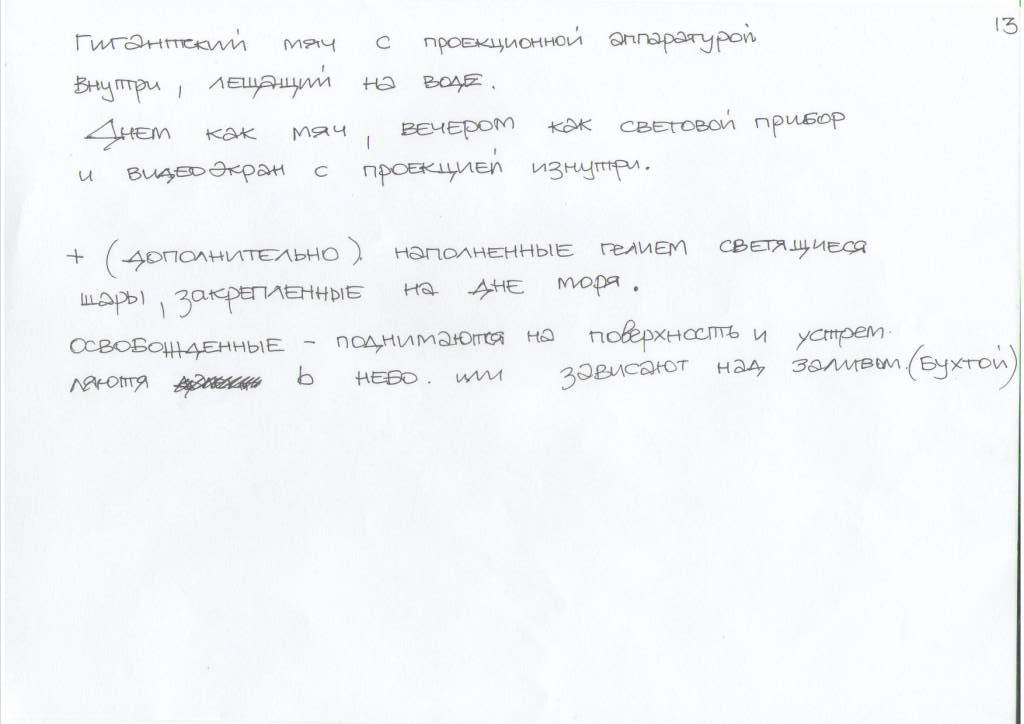 13
Гигантский мяч с проекционной аппаратурой
внутри, лещащий на воде.
Днем как мяч, вечером как световой прибор
и видеоэкран с проекцией изнутри.
+ (дополнительно) наполненные гелием светящиеся
шары, закрепленные на дне моря.
освобожденные – поднимаются на поверхность и устрем.
ляются в небо. или зависают над заливом. (бухтой)